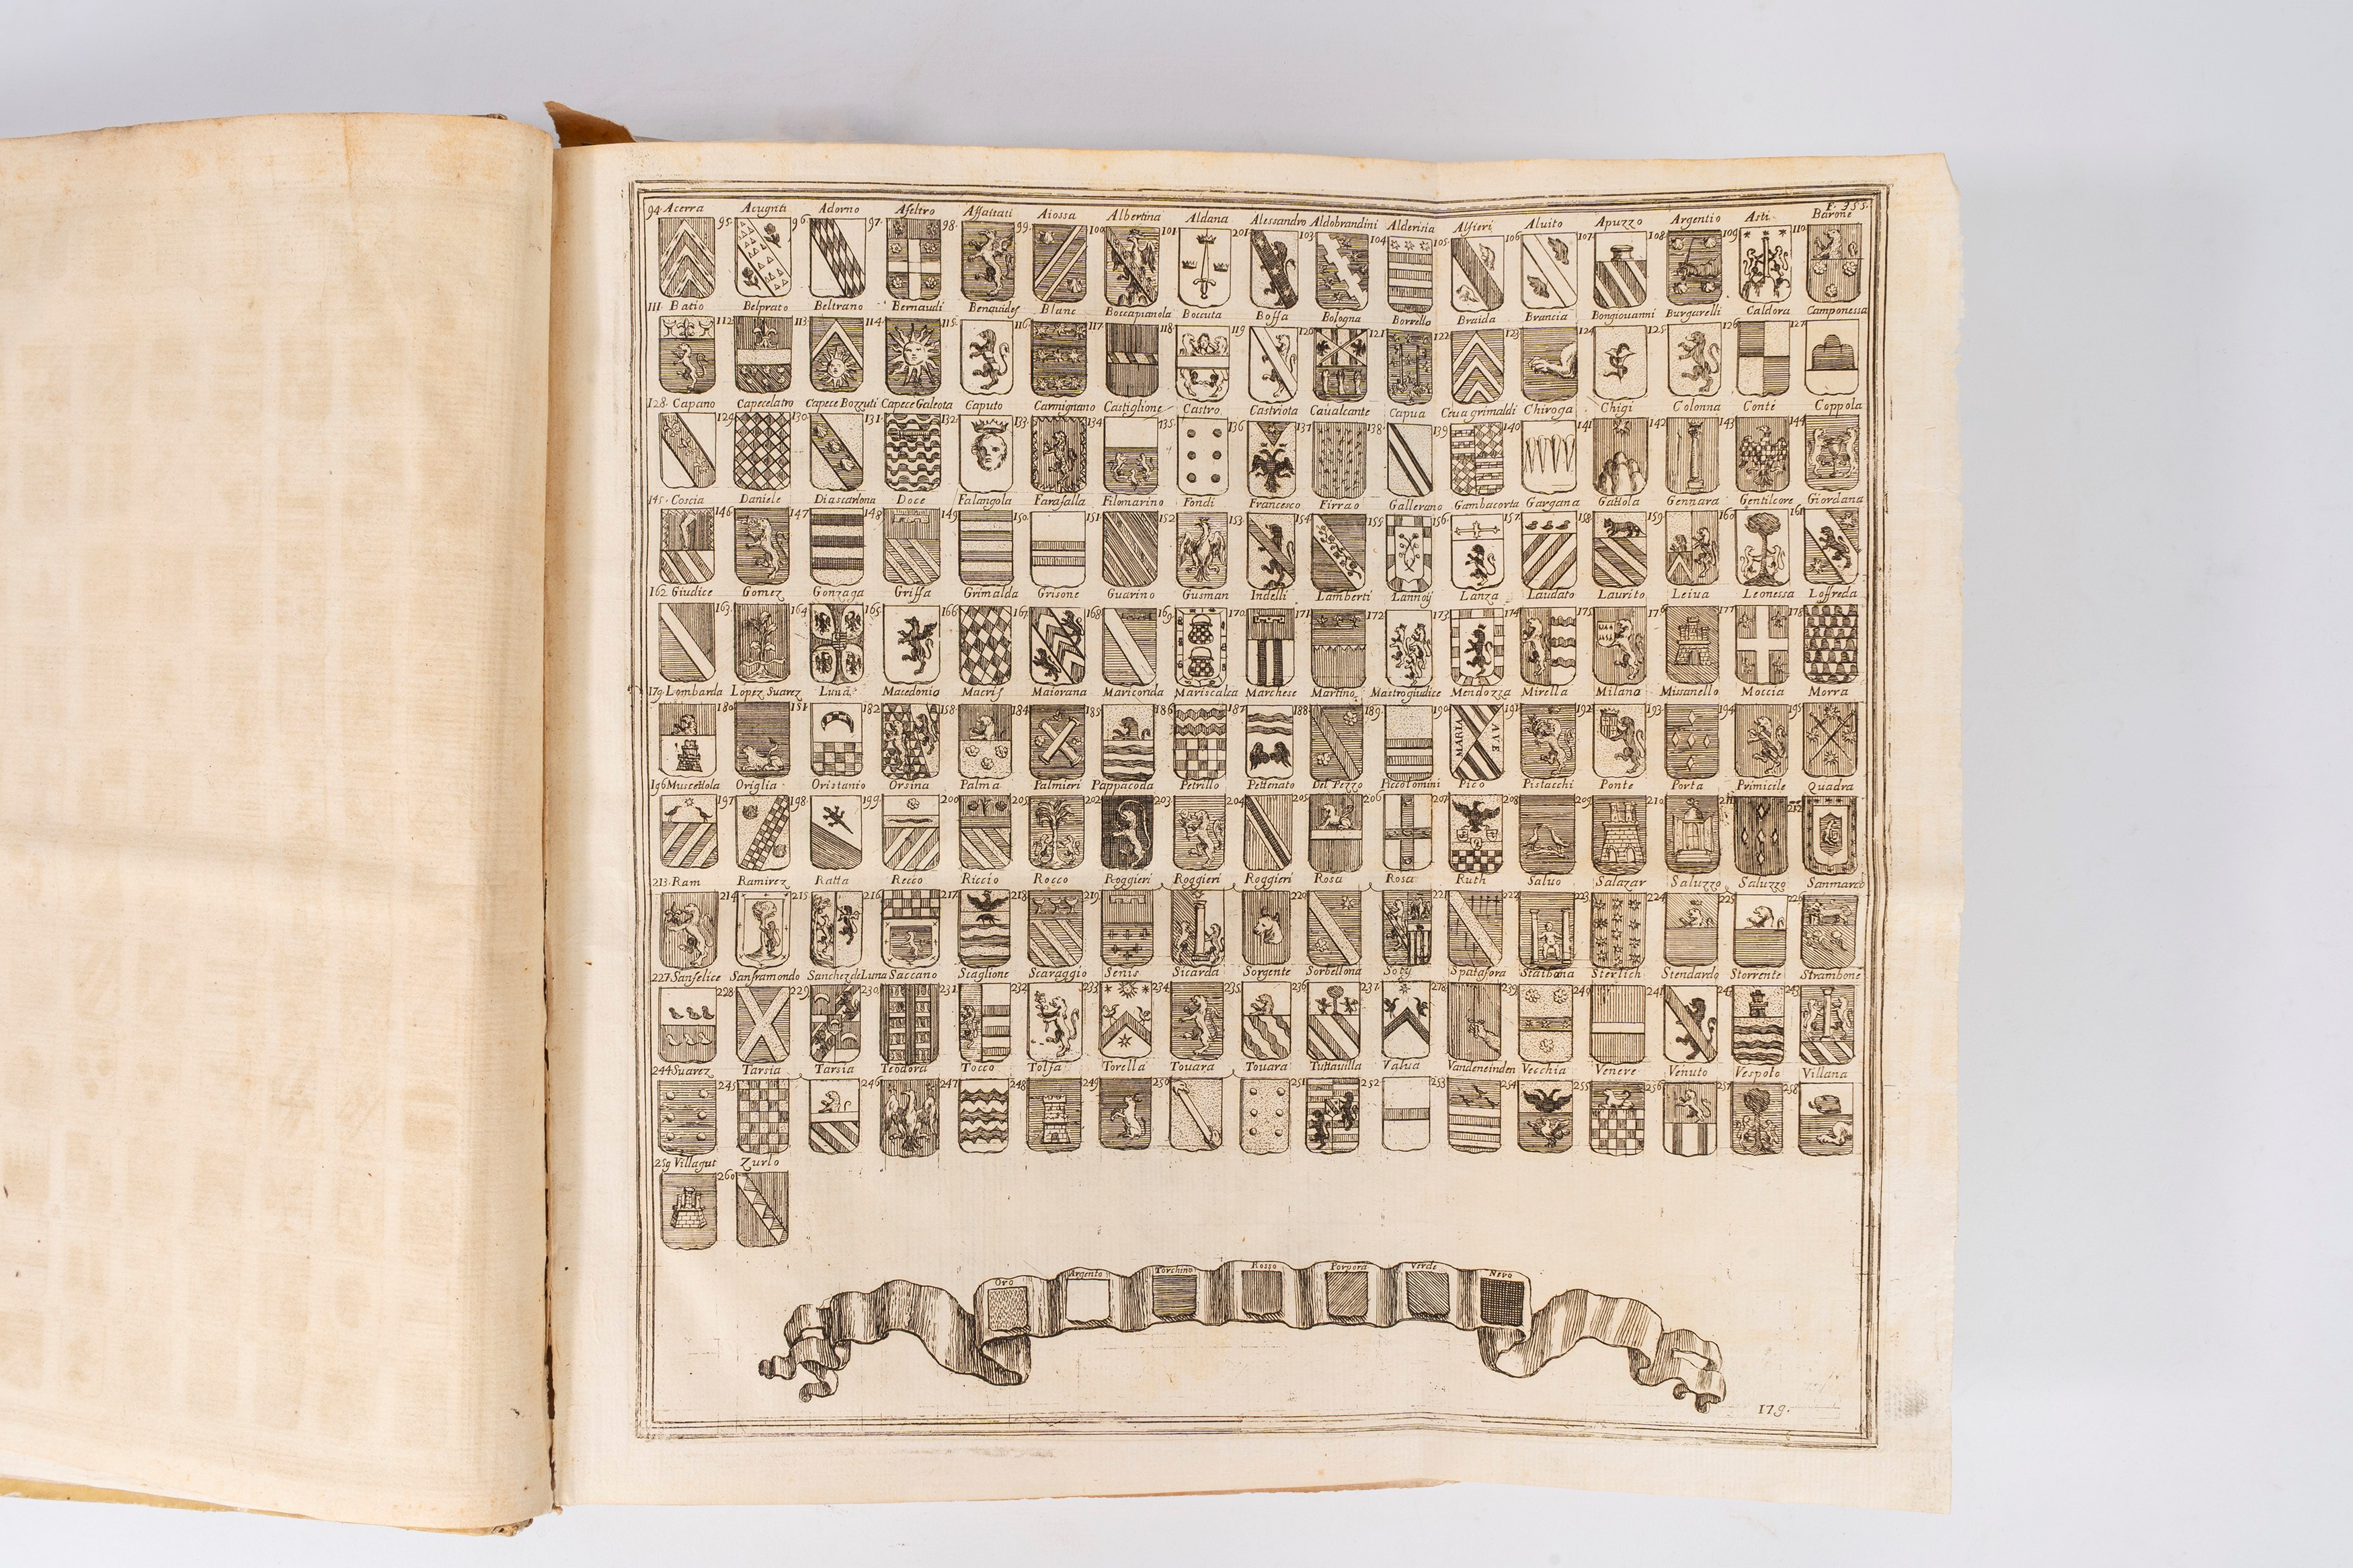 P. 355.
94. Acerra 95. Acugnti 96. Adorno 97. Afeltro 98. Affaitati 99. Aiossa 100 Albertina 101 Aldana 201 Alessandro 103 Aldobrandini 104 Alderisia 105 Alfieri 106 Aluito 107 Apuzzo 108 Argentio 109 Asti 110. Barone
111. Batio 112 Belprato 113 Beltrano 114 Bernaudi 115 Benauides 116 Blanc 117 Boccapianola 118 Boccuta 119 Boffa 120 Bologna 121 Borrello 122 Braida 123 Brancia 124 Bongiouanni 125 Burgarelli 126 Caldora 127 Camponessa
128. Capano 129 Capecelatro 130 Capece Bozzuti 131 Capece Galeota 132 Caputo 133 Carmignano 134 Castiglione 135 Castro 136 Castriota 137 Caualcante 138 Capua 139 Ceua grimaldi 140 Chiroga 141 Chigi 142 Colonna 143 Conte 144 Coppola
145. Coscia 146 Daniele 147 Diascarlona 148 Doce 149 Falangola 150. Farafalla 151 Filomarino 152 Fondi 153 Francesco 154 Firrao 155 Gallerano 156 Gambacorta 157 Gargana 158 Gattola 159 Gennara 160 Gentilcore 161 Giordana
162 Giudice 163 Gomez 164 Gonzaga 165 Griffa 166 Grimalda 167 Grisone 168 Guarino 169 Gusman 170 Indelli 171 Lamberti 172 Lannoÿ 173 Lanza 174 Laudato 175 Laurito 176 Leiua 177 Leonessa 178 Loffreda
179. Lombarda 180 Lopez Suarez 181 Luna 182 Macedonio 158 Macris 184 Maiorana 185 Mariconda 186 Mariscalca 187 Marchese 188 Martino 189 Mastrogiudice 190 Mendozza 191 Mirella 192 Milano 193 Missanello 194 Moccia 195 Morra
MARIA AVE
196 Muscettola 197 Origlia 198 Oristanio 199 Orsina 200 Palma 205 Palmieri 202 Pappacoda 203 Petrillo 204 Pettenato 205 Del Pezzo 206 Piccolomini 207 Pico 208 Pistacchi 209 Ponte 210 Porta 211 Primicile 212 Quadra
213. Ram 214 Ramirez 215 Ratta 216 Recco 217 Riccio 218 Rocco 219 Roggieri Roggieri Roggieri 220 Rosa Rosa 221 Ruth 222 Saluo 223 Salazar 224 Saluzzo 225 Saluzzo 226 Sanmarco
227 Sanfelice 228 Sanframondo 229 Sanchez de Luna 230 Saccano 231 Scaglione 232 Scaraggio 233 Senis 234 Sicarda 235 Sorgente 236 Sorbellona 237 Soty 278 Spatafora 239 Staibana 240 Sterlich 241 Stendardo 242 Storrente 243 Strambone
244 Suarez 245 Tarsia Tarsia 246 Teodora 247 Tocco 248 Tolfa 249 Torella 250 Touara Touara 251 Tuttauilla 252 Valua 253 Vandeneinden 254 Vecchia 255 Venere 256 Venuto 257 Vespolo 258 Villana
259 Villagut 260 Zurlo
Oro Argento Torchino Rosso Porpora Verde Nero
179.